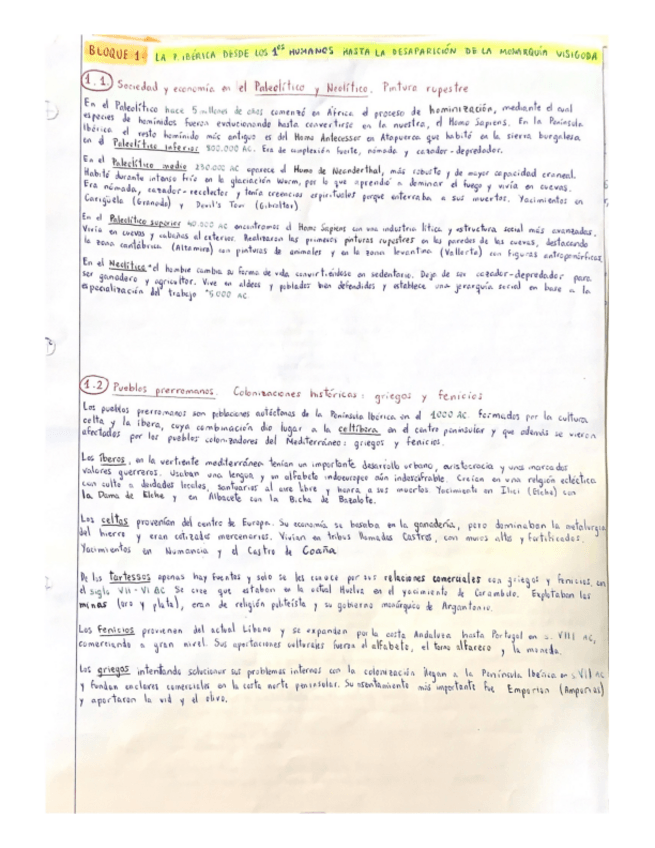 BLOQUE 1. LA P. IBÉRICA DESDE LOS 1os HUMANOS HASTA LA DESAPARICIÓN DE LA MONARQUÍA VISIGODA
1.1. Sociedad y economía en el Paleolítico y Neolítico. Pintura rupestre
En el Paleolítico hace 5 millones de años comenzó en África el proceso de hominización, mediante el cual
especies de homínidos fueron evolucionando hasta convertirse en la nuestra, el Homo Sapiens. En la Península
Ibérica el resto homínido más antiguo es del Homo Antecessor en Atapuerca que habitó en la sierra burgalesa
en el Paleolítico inferior 800.000 AC. Era de complexión fuerte, nómada y cazador-depredador.
En el Paleolítico medio 230.000 AC aparece el Homo de Neanderthal, más robusto y de mayor capacidad craneal.
Habitó durante intenso frío en la glaciación Würm, por lo que aprendió a dominar el fuego y vivía en cuevas.
Era nómada, cazador-recolector y tenía creencias espirituales porque enterraba a sus muertos. Yacimientos en
Carigüela (Granada) y Devil's Tow (Gibraltar)
En el Paleolítico superior 40.000 AC encontramos el Homo Sapiens con una industria lítica y estructura social más avanzadas.
Vivía en cuevas y cabañas al exterior. Realizaron las primeras pinturas rupestres en las paredes de las cuevas, destacando
la zona cantábrica (Altamira) con pinturas de animales y en la zona levantina (Vallorta) con figuras antropomórficas.
En el Neolítico* el hombre cambia su forma de vida convirtiéndose en sedentario. Deja de ser cazador-depredador para
ser ganadero y agricultor. Vive en aldeas y poblados bien defendidos y establece una jerarquía social en base a la
especialización del trabajo *5000 AC
1.2 Pueblos prerromanos. Colonizaciones históricas: griegos y fenicios
Los pueblos prerromanos son poblaciones autóctonas de la Península Ibérica en el 1000 AC. Formados por la cultura
celta y la íbera, cuya combinación dio lugar a la celtíbera en el centro peninsular y que además se vieron
afectados por los pueblos colonizadores del Mediterráneo: griegos y fenicios.
Los íberos, en la vertiente mediterránea tenían un importante desarrollo urbano, aristocracia y unos marcados
valores guerreros. Usaban una lengua y un alfabeto indoeuropeo aún indescifrable. Creían en una religión ecléctica
con culto a deidades locales, santuarios al aire libre y honra a sus muertos. Yacimiento en Ilici (Elche) con
la Dama de Elche y en Albacete con la Bicha de Bazalote.
Los celtas provenían del centro de Europa. Su economía se basaba en la ganadería, pero dominaban la metalurgia
del hierro y eran cotizados mercenarios. Vivían en tribus llamadas Castros, con muros altos y fortificados.
Yacimientos en Numancia y el Castro de Coaña
De los tartessos apenas hay fuentes y solo se les conoce por sus relaciones comerciales con griegos y fenicios, en
el siglo VII-VI AC Se cree que estaban en la actual Huelva en el yacimiento de Carambolo. Explotaban las
minas (oro y plata), eran de religión politeísta y su gobierno monárquico de Argantonio.
Los fenicios provienen del actual Líbano y se expanden por la costa Andaluza hasta Portugal en s. VIII AC,
comerciando a gran nivel. Sus aportaciones culturales fueron el alfabeto, el torno alfarero y la moneda.
Los griegos intentando solucionar sus problemas internos con la colonización llegan a la Península Ibérica en s. VII AC
y fundan enclaves comerciales en la costa norte peninsular. Su asentamiento más importante fue Emporion (Ampurias)
y aportaron la vid y el olivo.